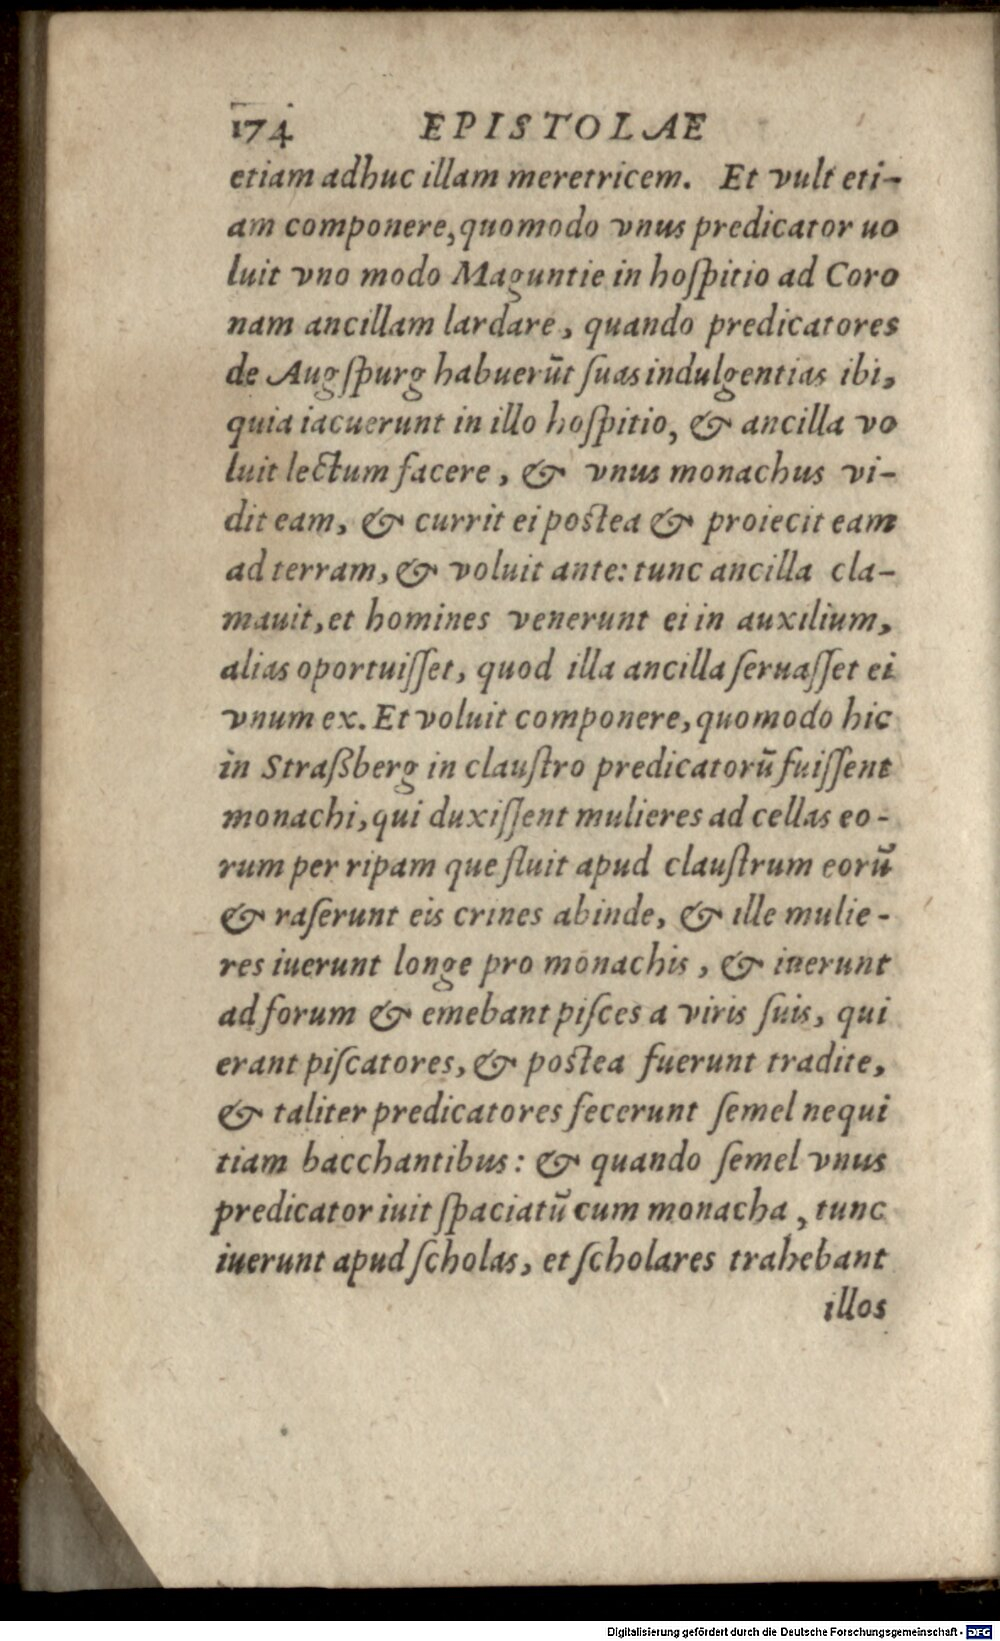 174 EPISTOLAE
etiam adhuc illam meretricem. Et vult eti-
am componere, quomodo vnus predicator uo
luit vno modo Maguntie in hoſpitio ad Coro
nam ancillam lardare, quando predicatores
de Augſpurg habuerũt ſuas indulgentias ibi,
quia iacuerunt in illo hoſpitio, & ancilla vo
luit lectum facere, & vnus monachus vi-
dit eam, & currit ei postea & proiecit eam
ad terram, & voluit ante: tunc ancilla cla-
mauit, et homines venerunt ei in auxilium,
alias oportuiſſet, quod illa ancilla ſeruaſſet ei
vnum ex. Et voluit componere, quomodo hic
in Straßberg in clauſtro predicatorũ fuiſſent
monachi, qui duxiſſent mulieres ad cellas eo-
rum per ripam que fluit apud clauſtrum eorũ
& raſerunt eis crines abinde, & ille mulie-
res iuerunt longe pro monachis, & iuerunt
ad forum & emebant piſces a viris ſuis, qui
erant piſcatores, & postea fuerunt tradite,
& taliter predicatores fecerunt ſemel nequi
tiam bacchantibus: & quando ſemel vnus
predicator iuit ſpaciatũ cum monacha, tunc
iuerunt apud ſcholas, et ſcholares trahebant
illos
Digitalisierung gefördert durch die Deutsche Forschungsgemeinschaft - DFG